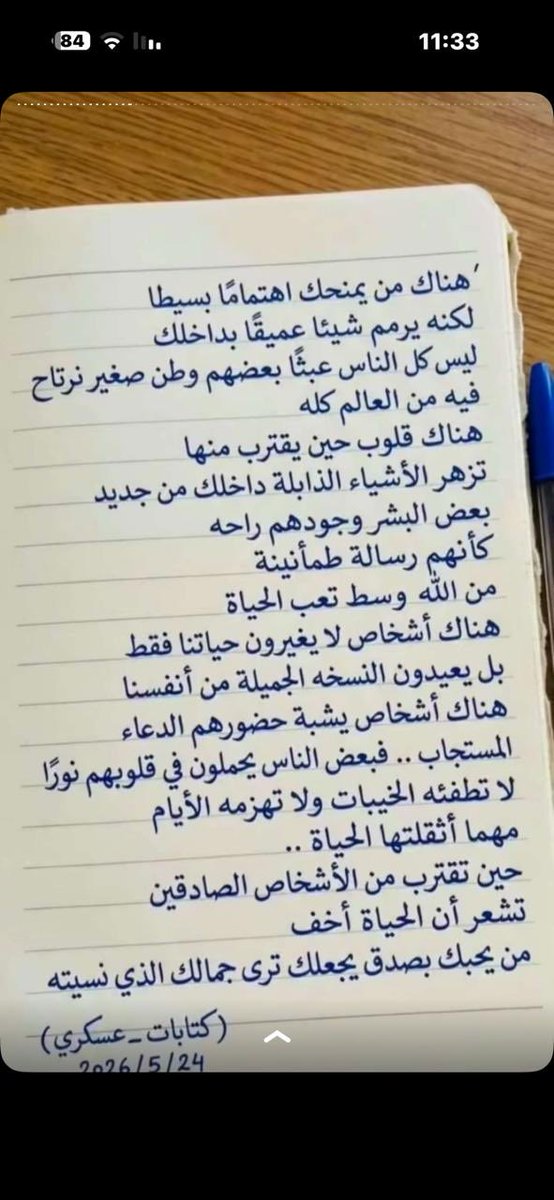 84
11:33
'هناك من يمنحك اهتمامًا بسيطا
لكنه يرمم شيئا عميقًا بداخلك
ليس كل الناس عبثًا بعضهم وطن صغير نرتاح
فيه من العالم كله
هناك قلوب حين يقترب منها
تزهر الأشياء الذابلة داخلك من جديد
بعض البشر وجودهم راحه
كأنهم رسالة طمأنينة
من الله وسط تعب الحياة
هناك أشخاص لا يغيرون حياتنا فقط
بل يعيدون النسخه الجميلة من أنفسنا
هناك أشخاص يشبة حضورهم الدعاء
المستجاب .. فبعض الناس يحملون في قلوبهم نورًا
لا تطفئه الخيبات ولا تهزمه الأيام
مهما أثقلتها الحياة ..
حين تقترب من الأشخاص الصادقين
تشعر أن الحياة أخف
من يحبك بصدق يجعلك ترى جمالك الذي نسيته
(كتابات_عسكري)
2026/5/24